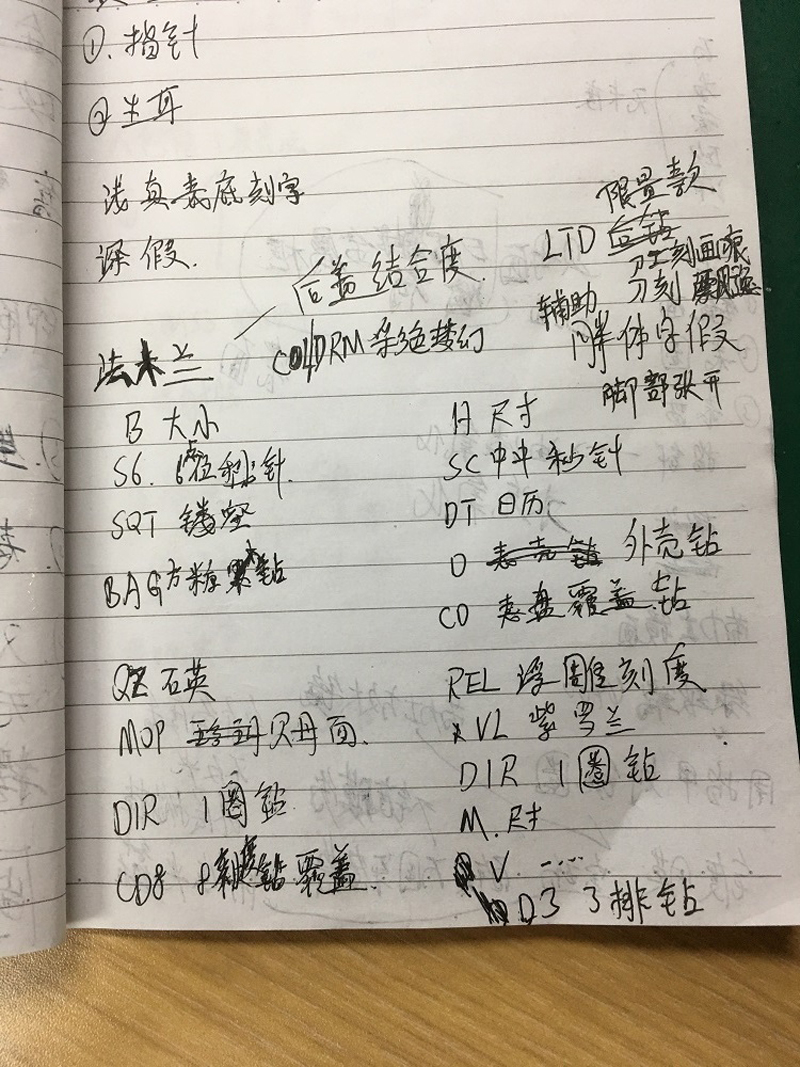 ①. 指针
② 生耳
浅 真 表底刻字
深 假.
限量款
LTD 后钻
刀刻画痕
辅助 刀刻
后盖结合度.
胖体字假
法兰
COL DRM 杀绝梦幻
脚部张开
B 大小
H 尺寸
S6. 6位秒针.
SC 中 秒针
SQT 镂空
DT 日历.
D 外壳钻
BAG 方糖 钻
CD 表盘覆盖 钻
QZ 石英
REL 浮雕刻度
MOP 贝母面.
VL 紫罗兰
DIR 1圈钻
DIR 1圈钻.
M. 尺寸
V ....
CD8 8 钻覆盖.
D3 3排钻